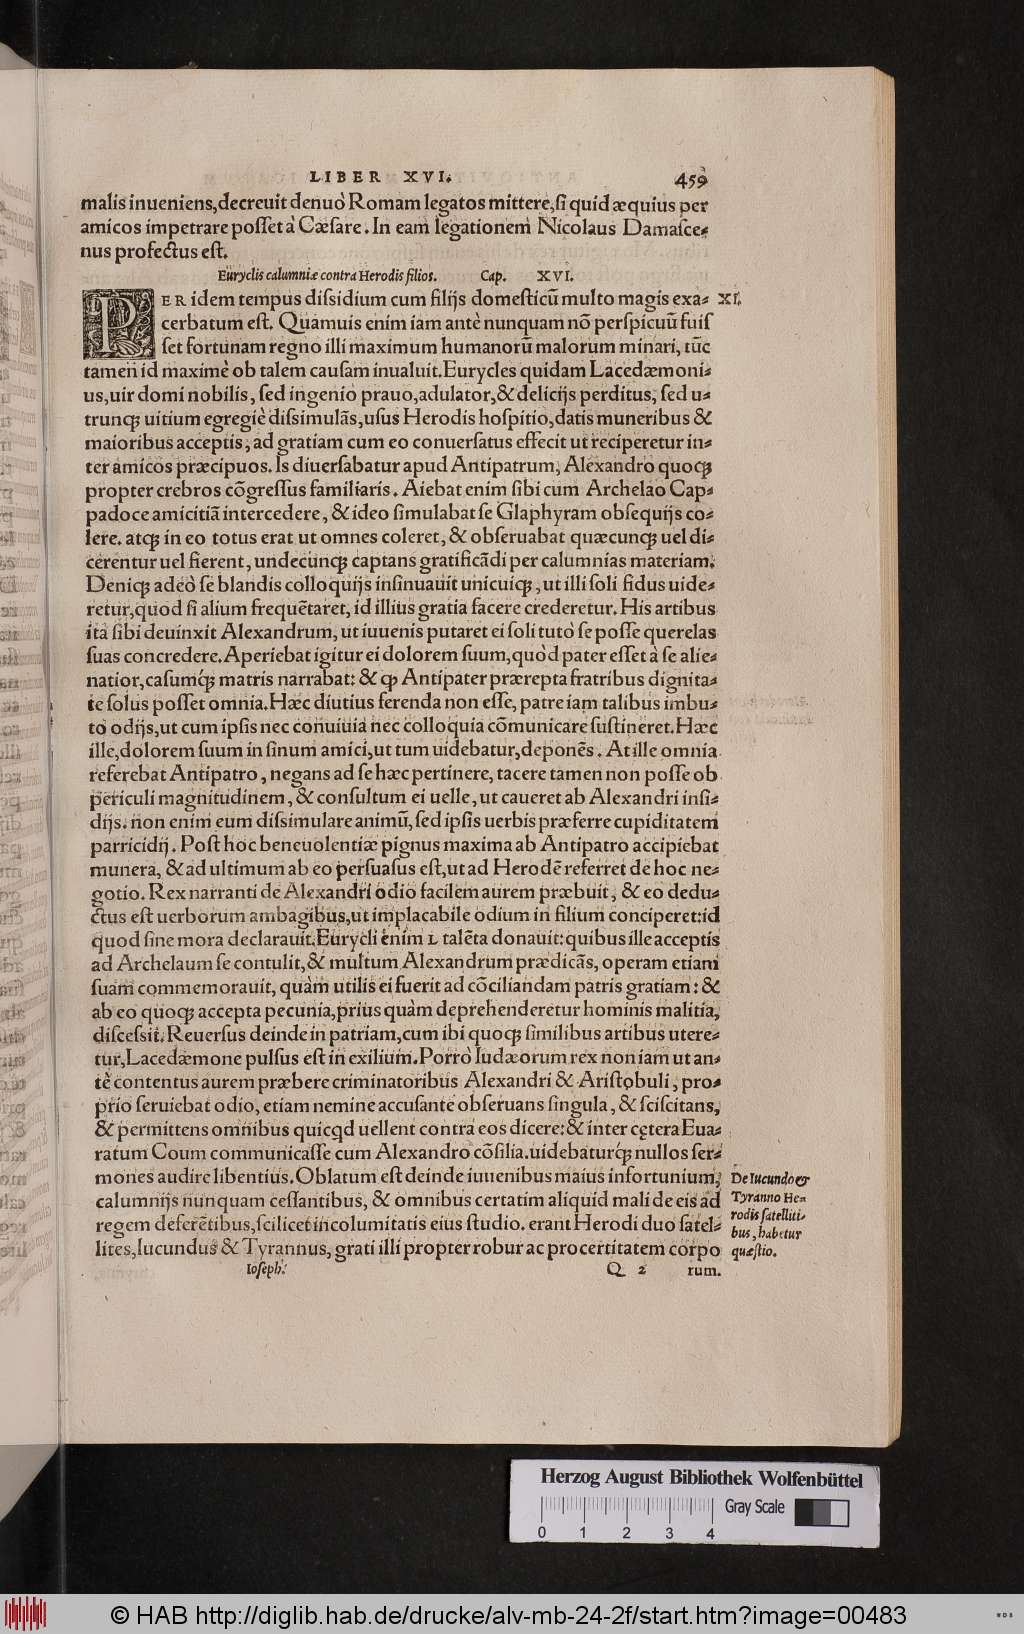 LIBER XVI. 459
malis inueniens,decreuit denuò Romam legatos mittere,ſi quid æquius per
amicos impetrare poſſet à Cæſare. In eam legationem Nicolaus Damaſce-
nus profectus eſt.
Euryclis calumniæ contra Herodis filios. Cap. XVI.
PER idem tempus diſsidium cum filijs domeſticū multo magis exa- XI.
cerbatum eſt. Quamuis enim iam antè nunquam nō perſpicuū fuiſ
ſet fortunam regno illi maximum humanorū malorum minari, tūc
tamen id maximè ob talem cauſam inualuit. Eurycles quidam Lacedæmoni-
us,uir domi nobilis, ſed ingenio prauo,adulator,& delicijs perditus, ſed u-
trunq; uitium egregiè diſsimulās,uſus Herodis hoſpitio,datis muneribus &
maioribus acceptis, ad gratiam cum eo conuerſatus effecit ut reciperetur in-
ter amicos præcipuos. Is diuerſabatur apud Antipatrum, Alexandro quoq;
propter crebros cōgreſſus familiaris. Aiebat enim ſibi cum Archelao Cap-
padoce amicitiā intercedere, & ideo ſimulabat ſe Glaphyram obſequijs co-
lere. atq; in eo totus erat ut omnes coleret, & obſeruabat quæcunq; uel di-
cerentur uel fierent, undecunq; captans gratificādi per calumnias materiam.
Deniq; adeò ſe blandis colloquijs inſinuauit unicuiq;, ut illi ſoli fidus uide-
retur,quod ſi alium frequētaret, id illius gratia facere crederetur. His artibus
ita ſibi deuinxit Alexandrum, ut iuuenis putaret ei ſoli tutò ſe poſſe querelas
ſuas concredere. Aperiebat igitur ei dolorem ſuum,quòd pater eſſet à ſe alie-
natior,caſumq́; matris narrabat: & ꝙ Antipater prærepta fratribus dignita-
te ſolus poſſet omnia. Hæc diutius ferenda non eſſe, patre iam talibus imbu-
to odijs,ut cum ipſis nec conuiuia nec colloquia cōmunicare ſuſtineret. Hæc
ille,dolorem ſuum in ſinum amici,ut tum uidebatur,deponēs. At ille omnia
referebat Antipatro, negans ad ſe hæc pertinere, tacere tamen non poſſe ob
periculi magnitudinem, & conſultum ei uelle, ut caueret ab Alexandri inſi-
dijs. non enim eum diſsimulare animū, ſed ipſis uerbis præferre cupiditatem
parricidij. Poſt hoc beneuolentiæ pignus maxima ab Antipatro accipiebat
munera, & ad ultimum ab eo perſuaſus eſt,ut ad Herodē referret de hoc ne-
gotio. Rex narranti de Alexandri odio facilem aurem præbuit, & eo dedu-
ctus eſt uerborum ambagibus,ut implacabile odium in filium conciperet:id
quod ſine mora declarauit. Eurycli enim L talēta donauit: quibus ille acceptis
ad Archelaum ſe contulit,& multum Alexandrum prædicās, operam etiam
ſuam commemorauit, quàm utilis ei fuerit ad cōciliandam patris gratiam: &
ab eo quoq; accepta pecunia,prius quàm deprehenderetur hominis malitia,
diſceſsit. Reuerſus deinde in patriam,cum ibi quoq; ſimilibus artibus utere-
tur,Lacedæmone pulſus eſt in exilium. Porrò Iudæorum rex non iam ut an-
tè contentus aurem præbere criminatoribus Alexandri & Ariſtobuli, pro-
prio ſeruiebat odio, etiam nemine accuſante obſeruans ſingula, & ſciſcitans,
& permittens omnibus quicqd uellent contra eos dicere: & inter cętera Eua-
ratum Coum communicaſſe cum Alexandro cōſilia. uidebaturq́; nullos ſer-
mones audire libentius. Oblatum eſt deinde iuuenibus maius infortunium,
calumnijs nunquam ceſſantibus, & omnibus certatim aliquid mali de eis ad
regem deferētibus,ſcilicet incolumitatis eius ſtudio. erant Herodi duo ſatel-
lites,Iucundus & Tyrannus, grati illi propter robur ac proceritatem corpo
De Iucundo &
Tyranno He-
rodis ſatelliti-
bus, habetur
quæſtio.
Ioſeph. Q 2 rum.
Herzog August Bibliothek Wolfenbüttel
Gray Scale
0 1 2 3 4
© HAB http://diglib.hab.de/drucke/alv-mb-24-2f/start.htm?image=00483